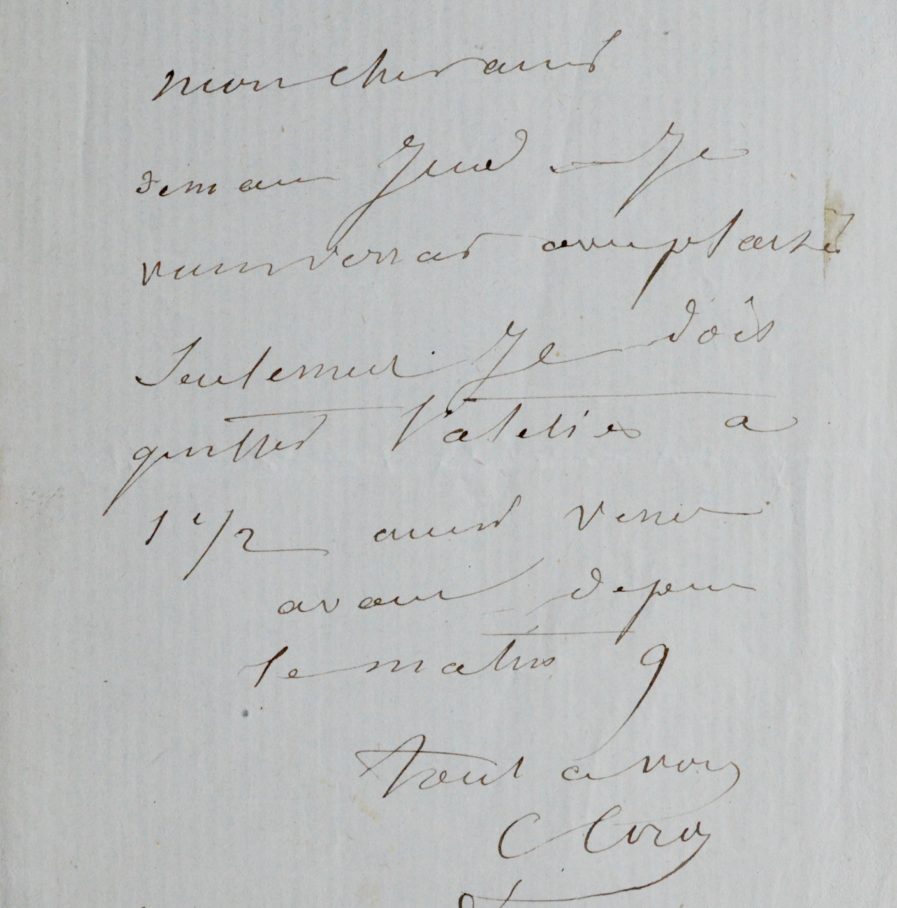 mon cher ami
demain Jeudi - Je
vous verrai avec plaisir
Seulement Je dois
quitter l'atelier a
1 1/2 ainsi venir
avant depuis
le matin 9
tout a vous
C Corot